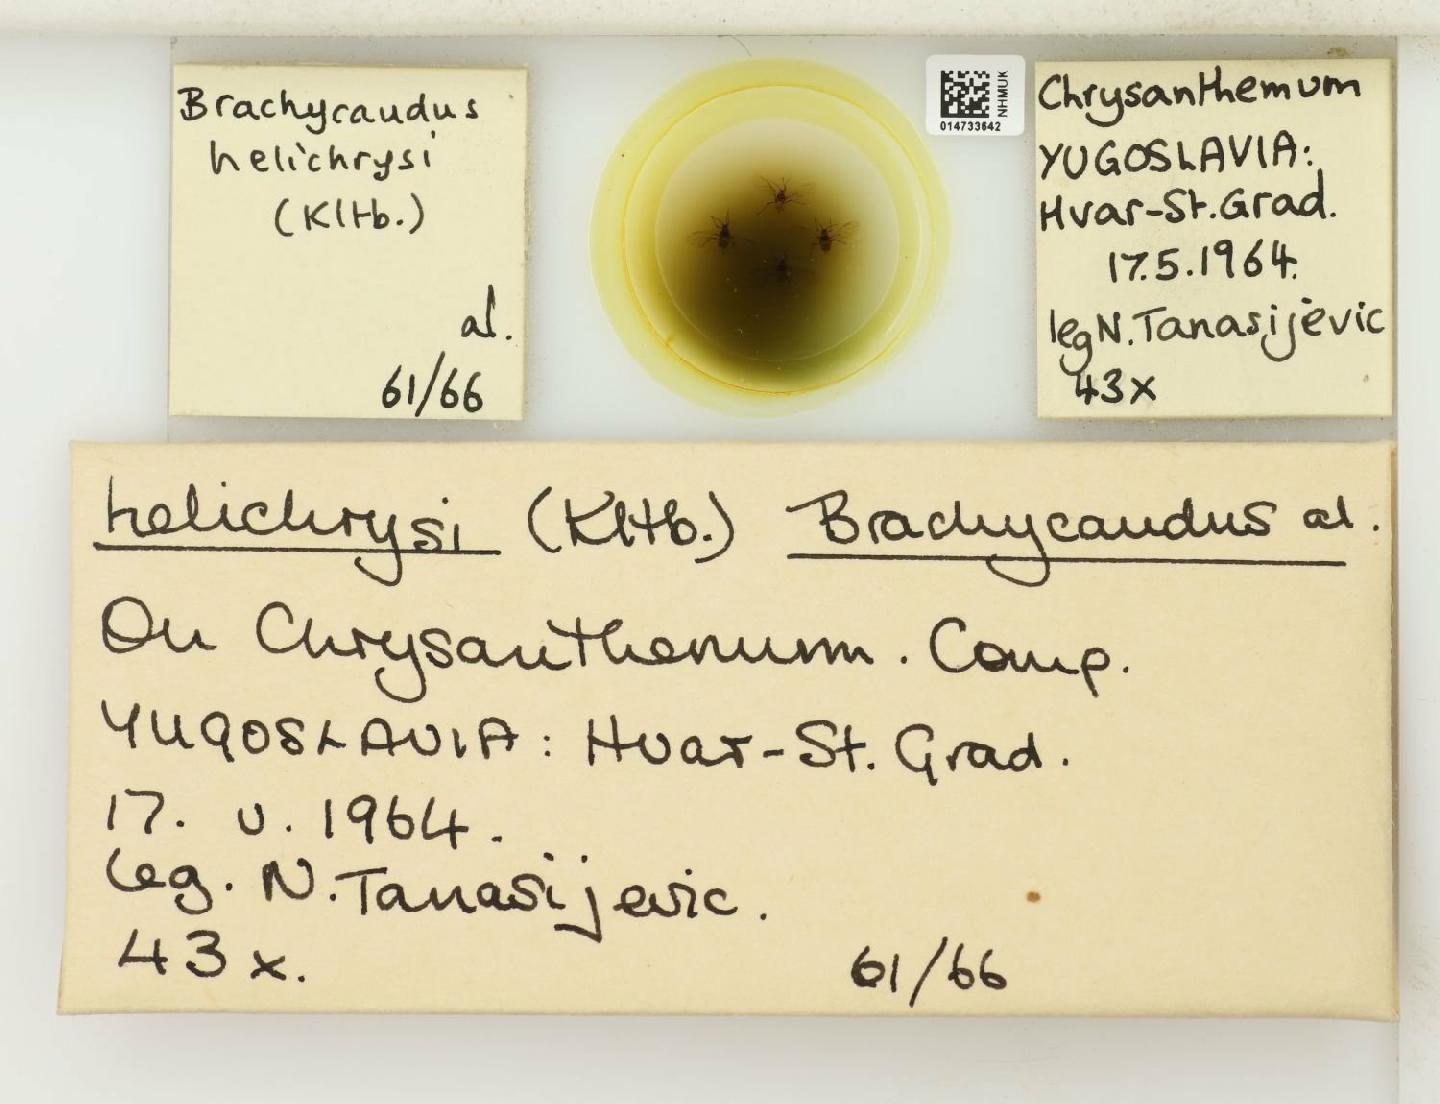 Brachycaudus
helichrysi
(Kltb.)
al.
61/66
NHMUK
014733642
Chrysanthemum
YUGOSLAVIA:
Hvar-St.Grad.
17.5.1964.
leg N. Tanasijevic
43x
helichrysi (Kltb.) Brachycaudus al.
On Chrysanthemum. Comp.
YUGOSLAVIA: Hvar-St. Grad.
17. v. 1964.
leg. N. Tanasijevic.
43x.
61/66